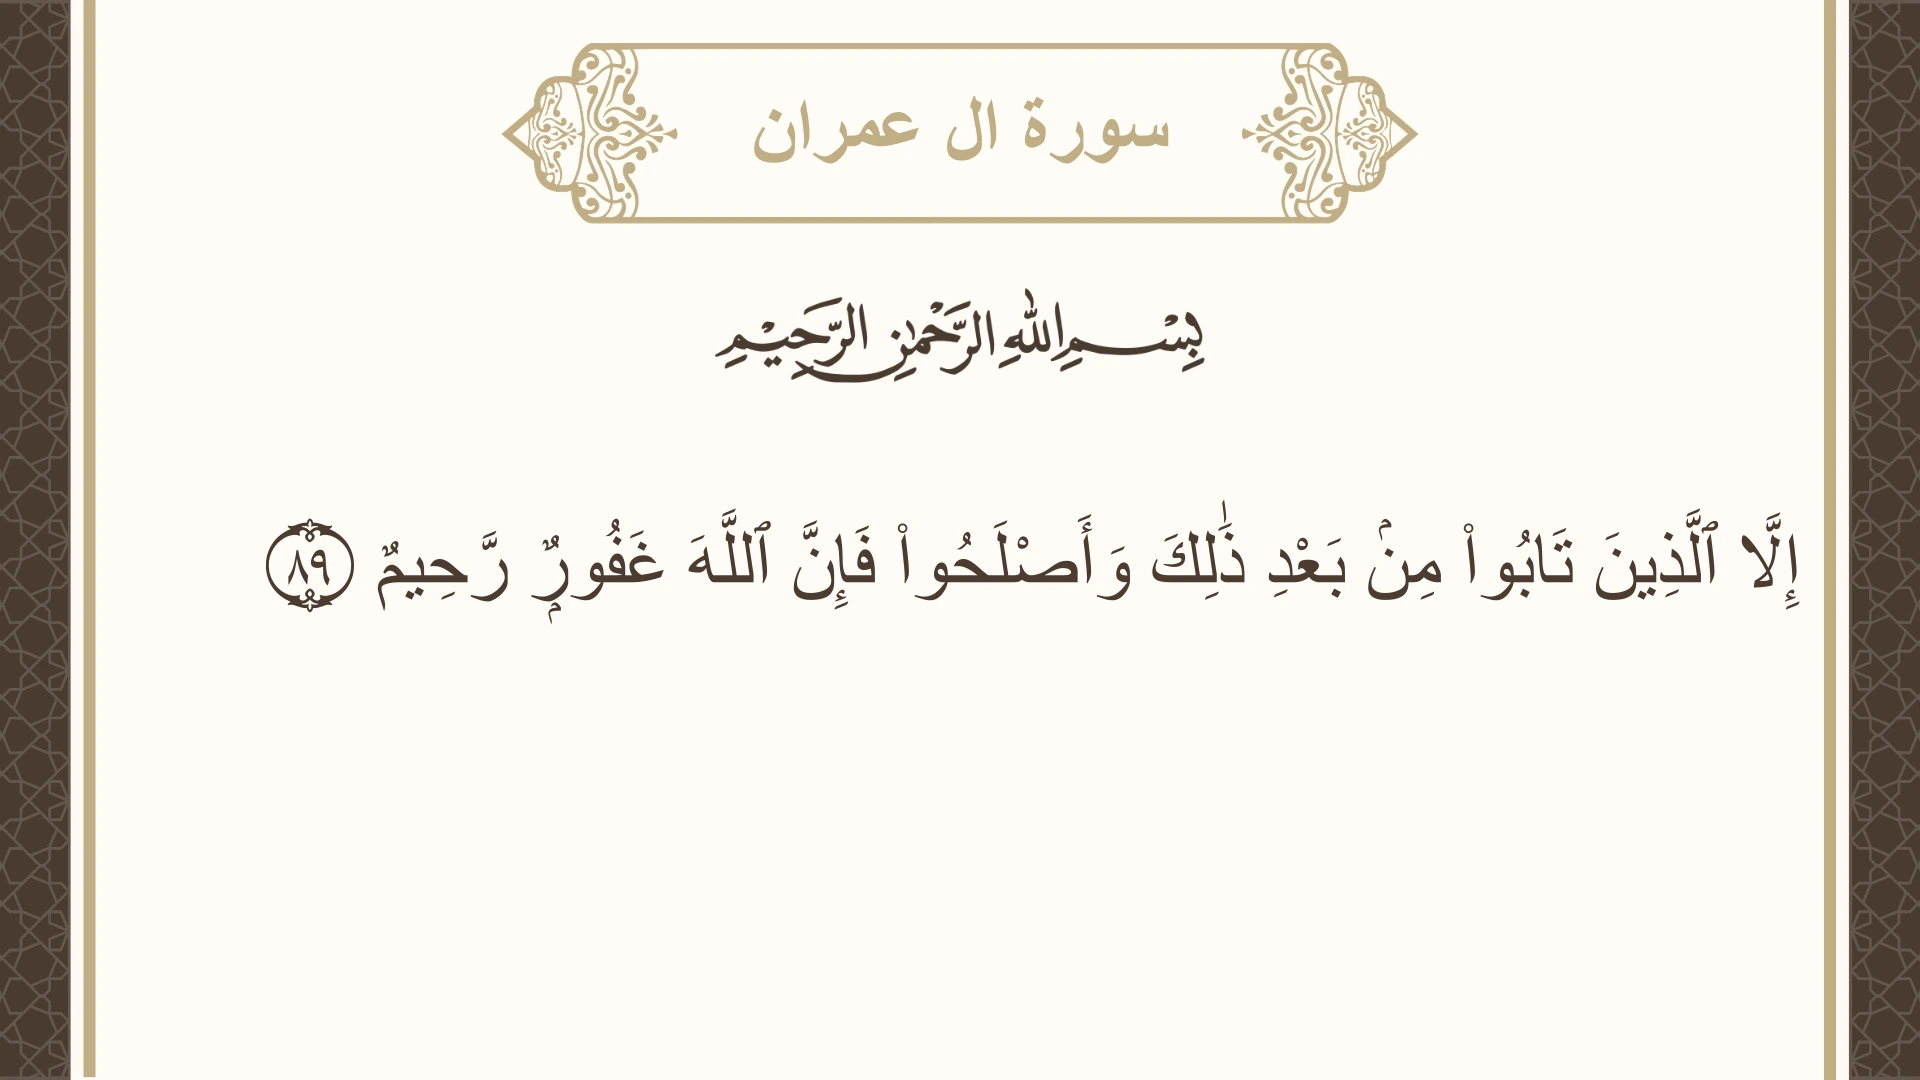 سورة ال عمران
بِسْمِ اللهِ الرَّحْمٰنِ الرَّحِيْمِ
إِلَّا ٱلَّذِينَ تَابُوا۟ مِنۢ بَعْدِ ذَٰلِكَ وَأَصْلَحُوا۟ فَإِنَّ ٱللَّهَ غَفُورٌۭ رَّحِيمٌ ﴿٨٩﴾